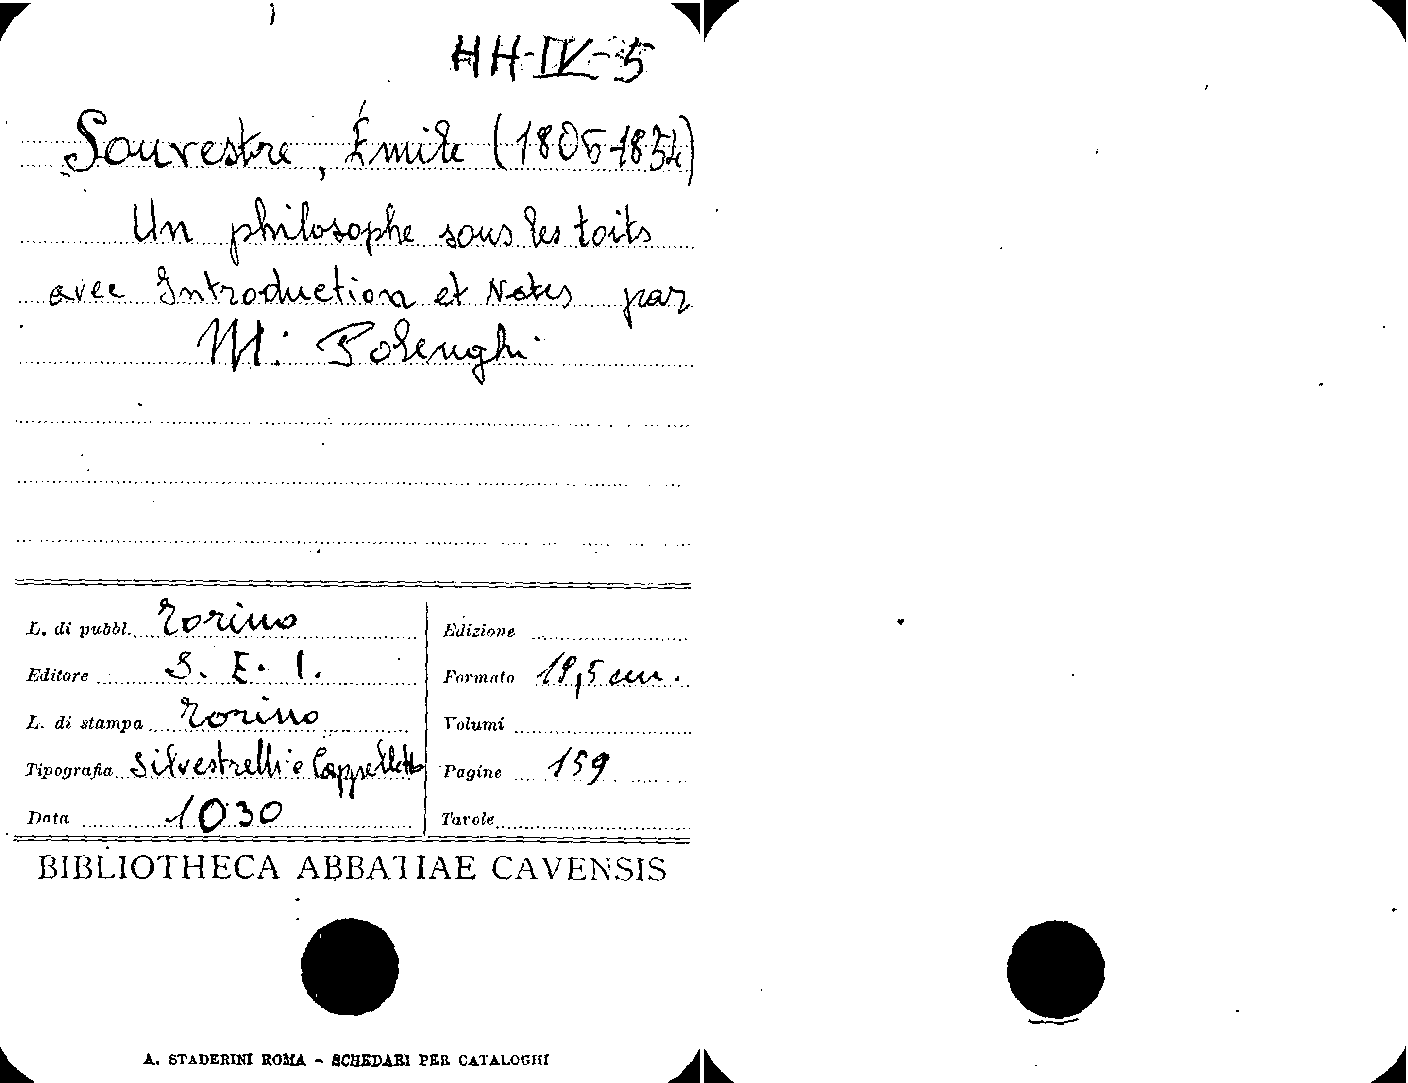 HH-IV-5
Souvestre, Émile (1806-1854)
Un philosophe sous les toits
avec Introduction et Notes par
M. Polenghi
L. di pubbl. Torino
Editore S. E. I.
L. di stampa Torino
Tipografia Silvestrelli e Cappelletto
Data 1930
Edizione
Formato 19,5 cm.
Volumi
Pagine 159
Tavole
BIBLIOTHECA ABBATIAE CAVENSIS
A. STADERINI ROMA - SCHEDARI PER CATALOGHI